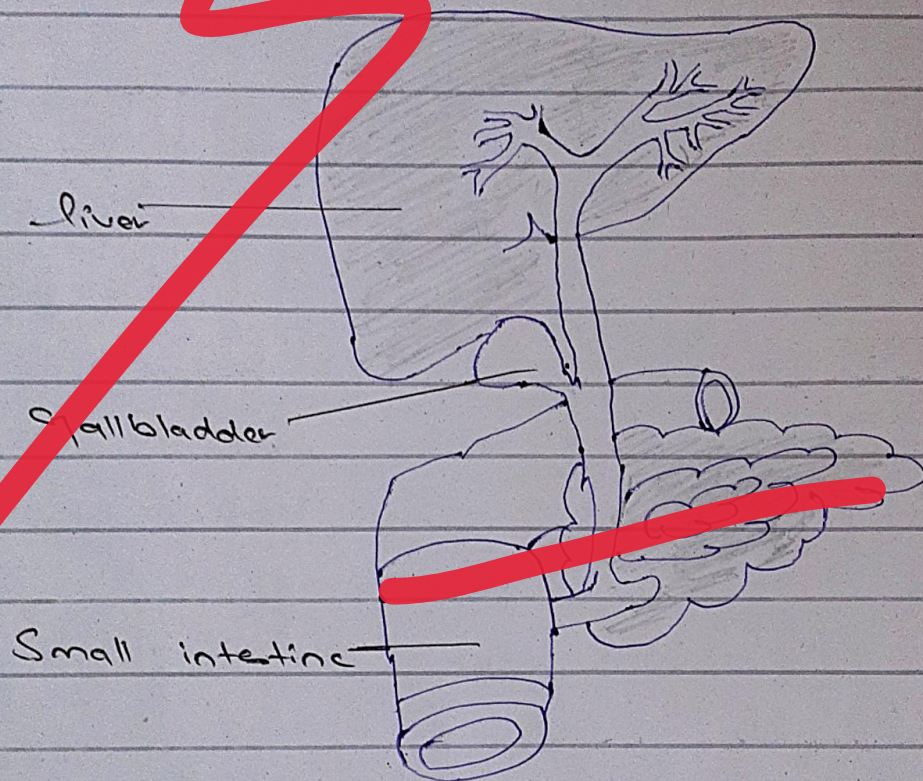 liver
gallbladder
Small intestine